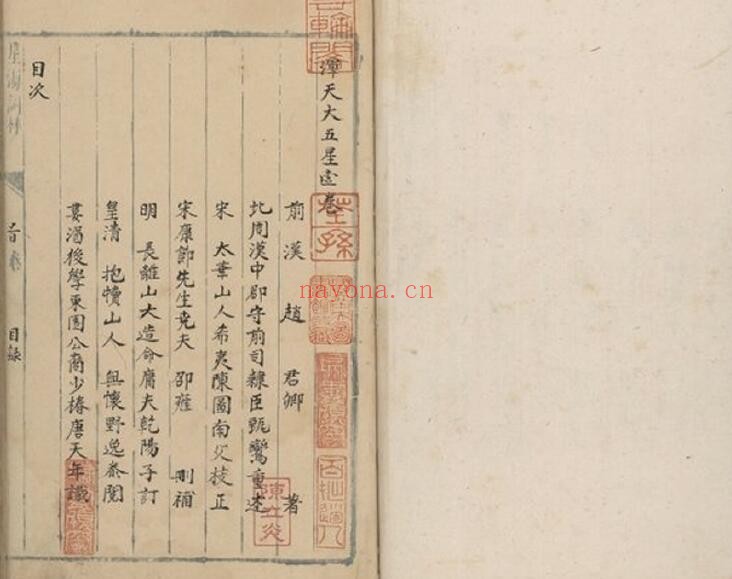 渾天大五星壹卷
前漢 趙 君卿 著
北周漢中郡守前司隸臣甄鸞重述
宋 太華山人希夷陳圖南父校正
宋康節先生堯夫 邵雍 刪補
明 長離山大造命庸夫乾陽子訂
皇清 抱犢山人 無懷野逸叅閱
後學東園公裔少椿唐天年識
目次
目錄
陳立炎
nayona.cn